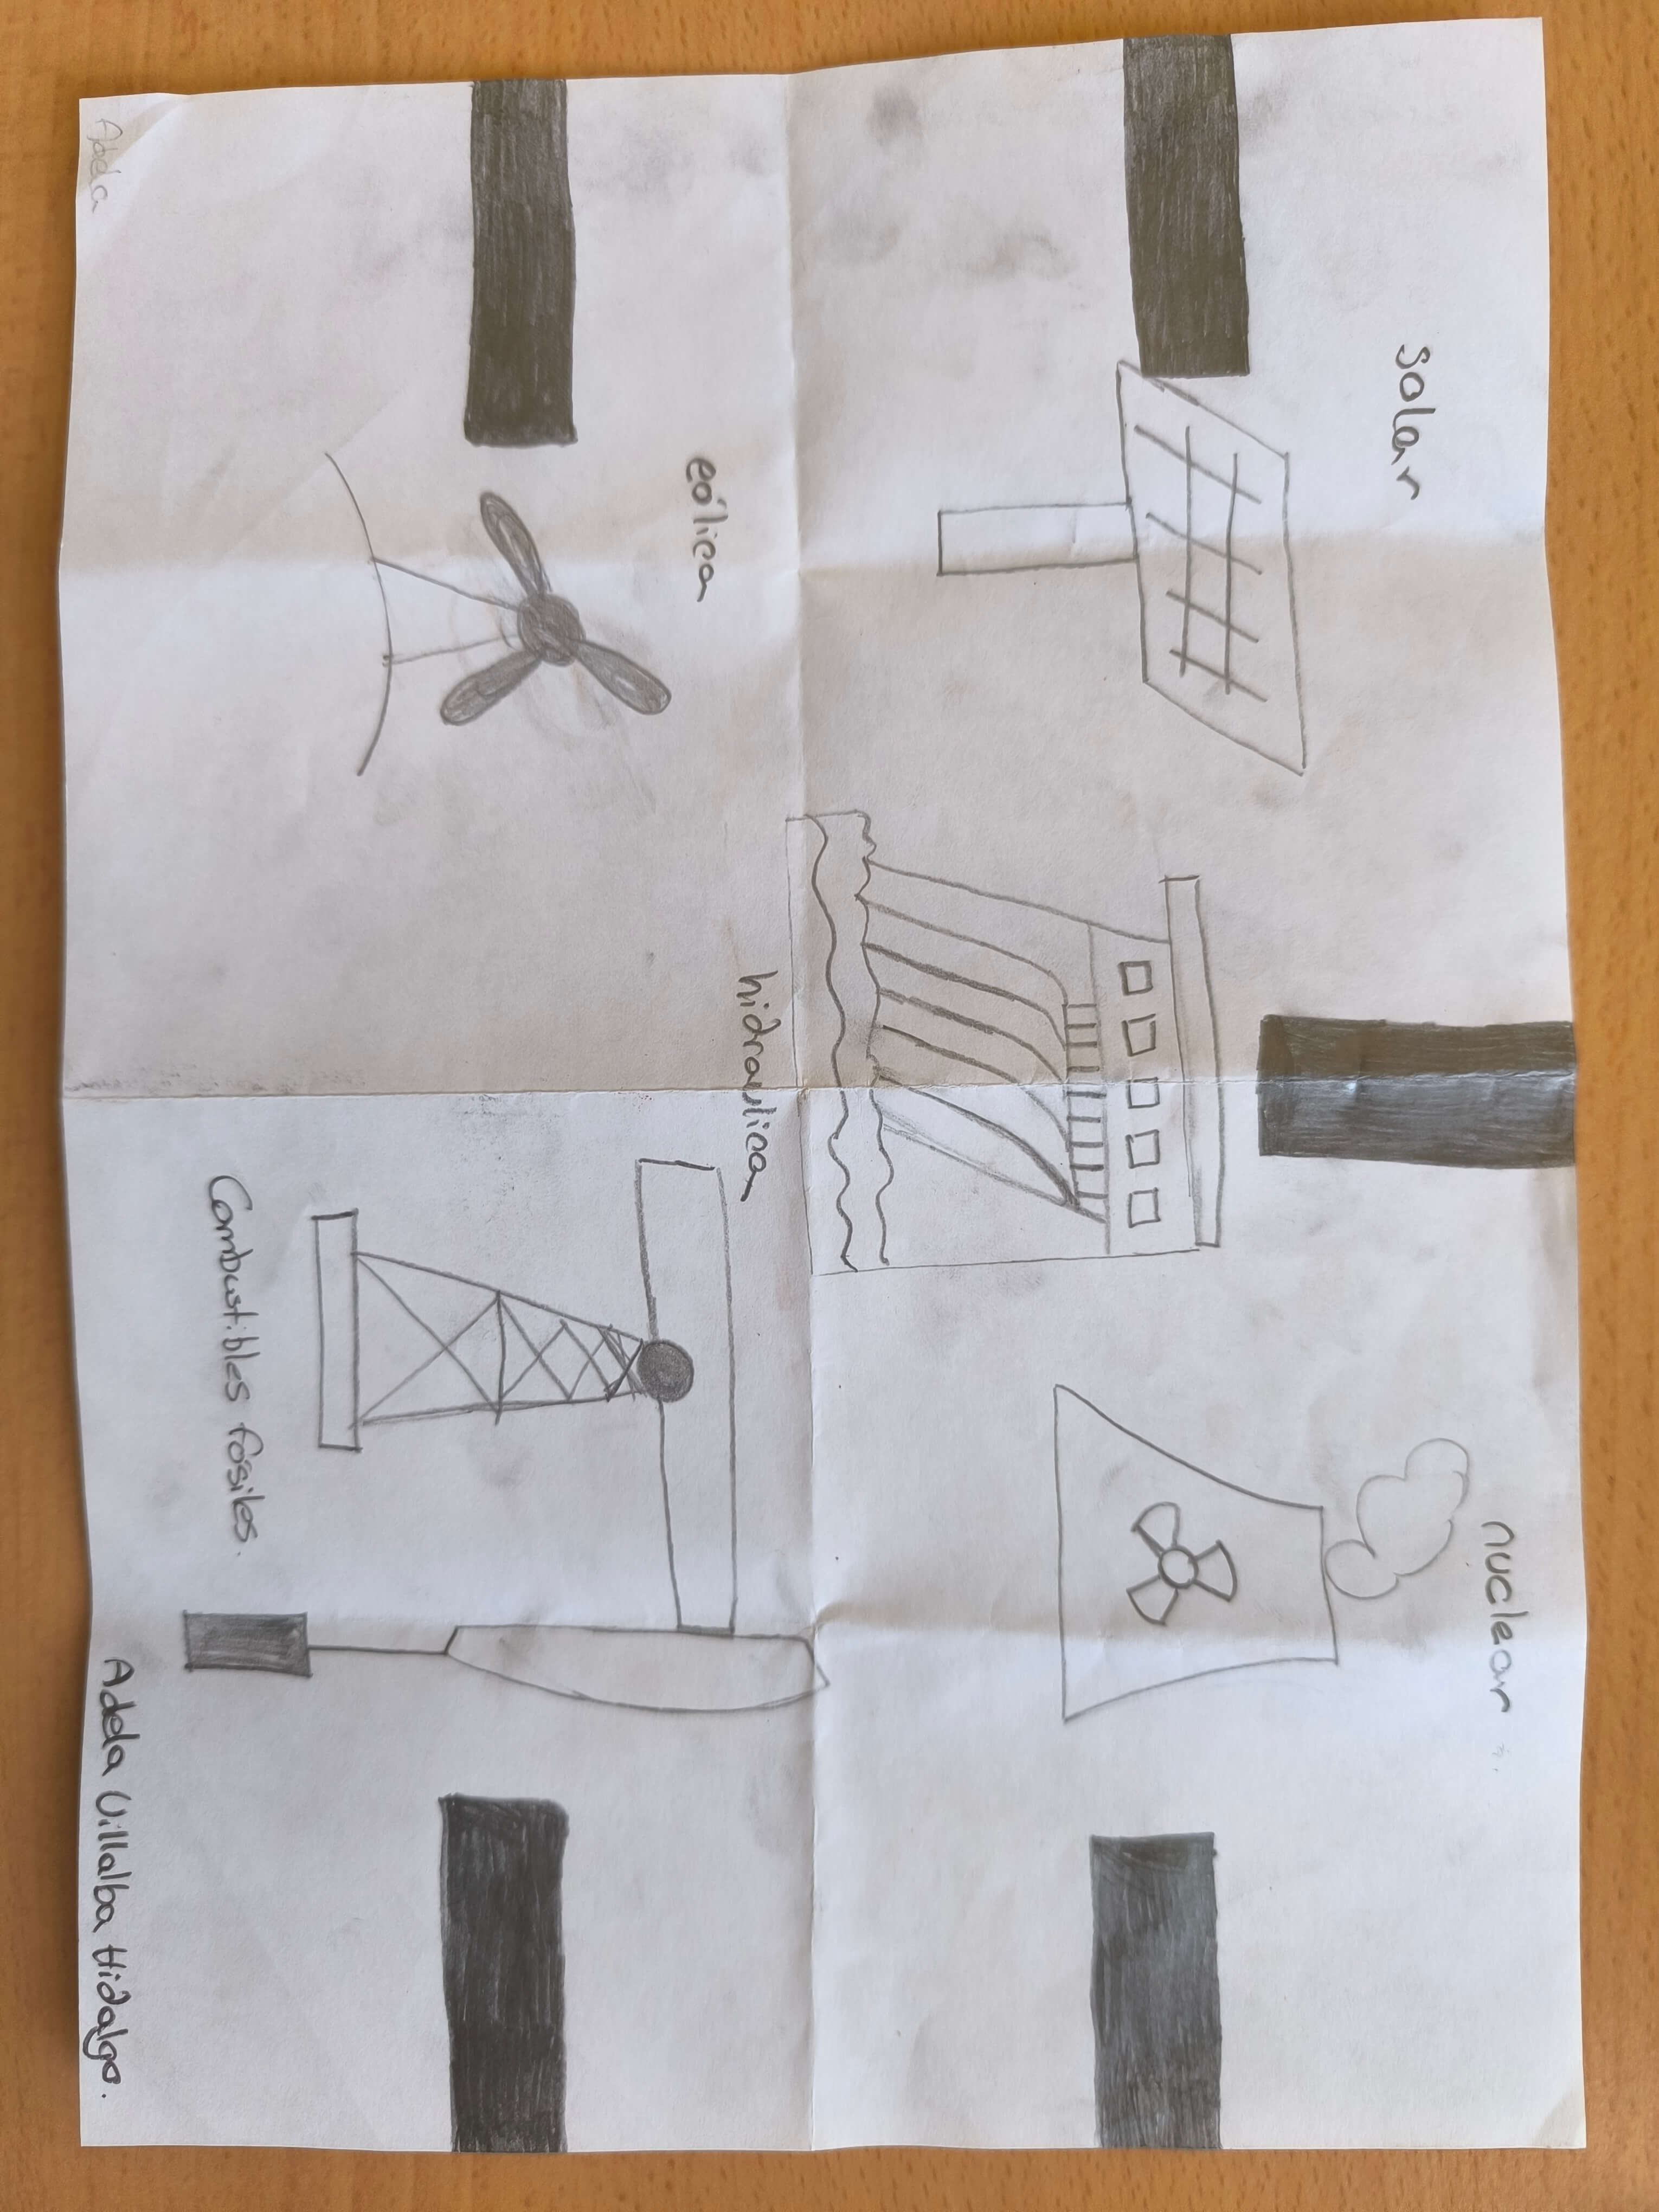 nuclear
solar
hidraulica
eólica
Combustibles fósiles.
Adela Villalba Hidalgo.
Adela